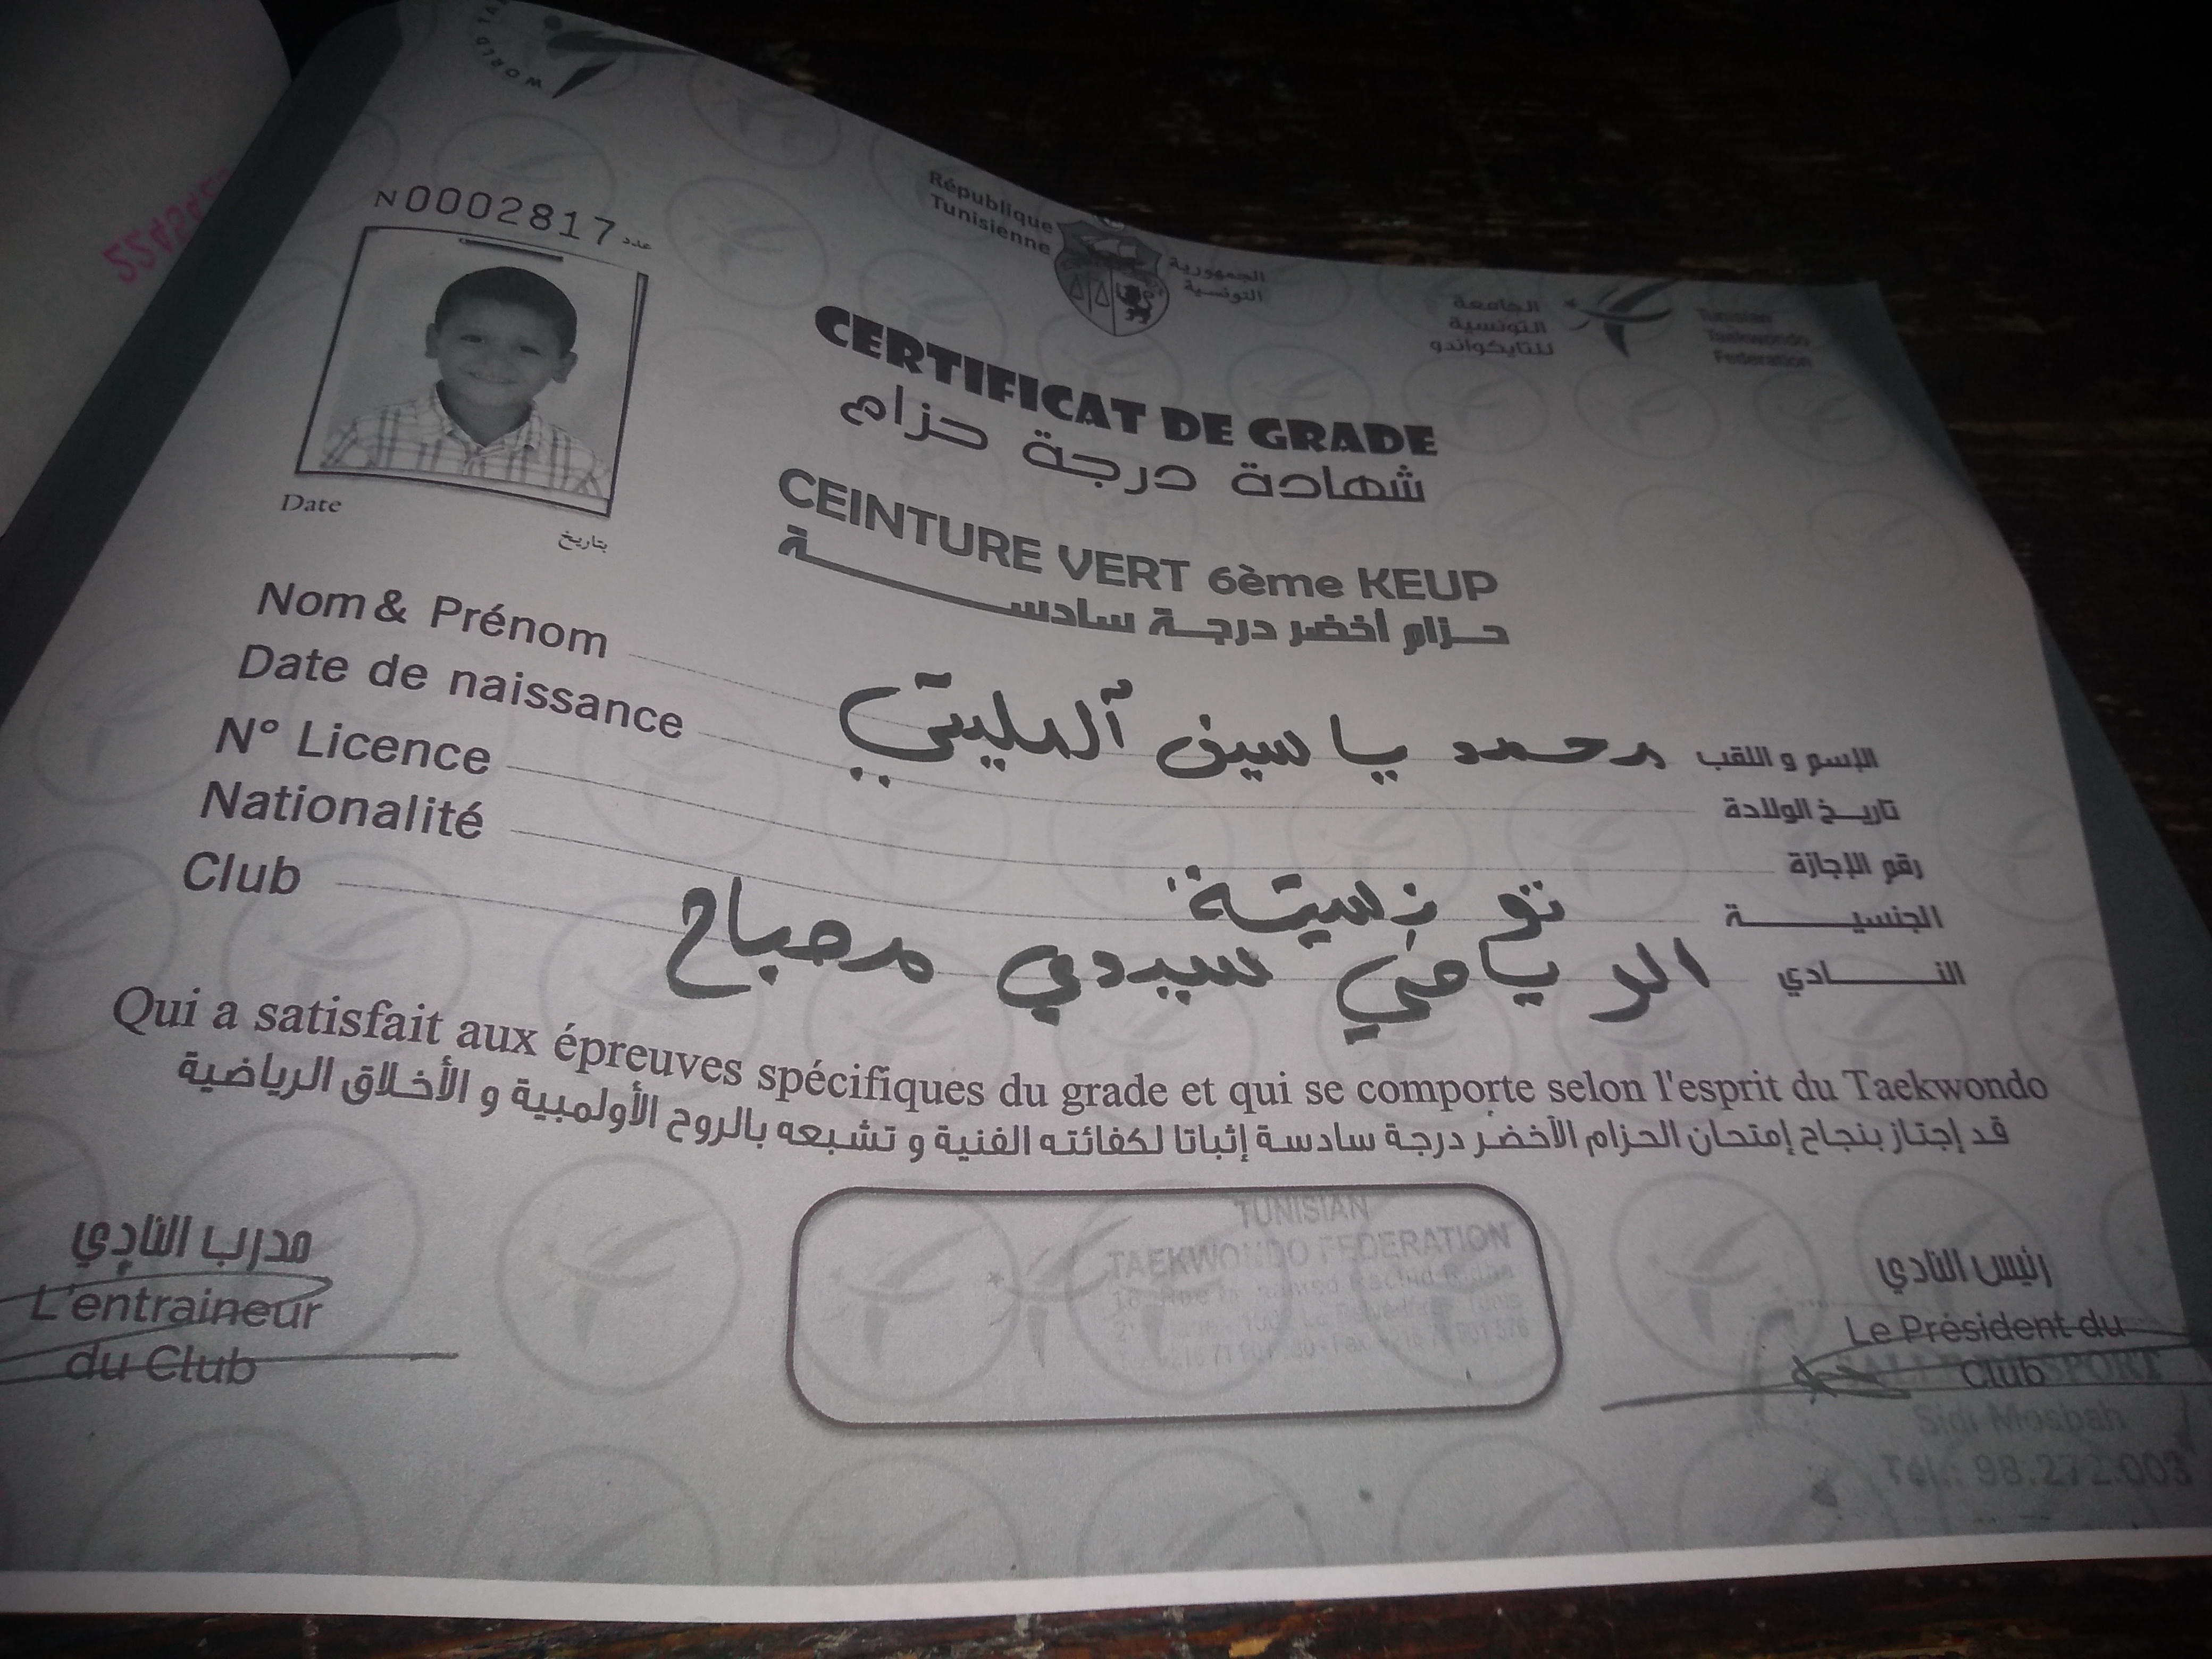 WORLD TA
N0002817 عدد
République
Tunisienne
الجمهورية
التونسية
الجامعة
التونسية
للتايكواندو
Tunisian
Taekwondo
Federation
CERTIFICAT DE GRADE
شهادة درجة حزام
CEINTURE VERT 6ème KEUP
حزام أخضر درجة سادسة
Date
بتاريخ
Nom & Prénom محمد ياسين المليتي الإسم و اللقب
Date de naissance تاريخ الولادة
N° Licence رقم الإجازة
Nationalité تونسية الجنسية
Club الرياضي سيدي مصباح النادي
Qui a satisfait aux épreuves spécifiques du grade et qui se comporte selon l'esprit du Taekwondo
قد إجتاز بنجاح إمتحان الحزام الأخضر درجة سادسة إثباتا لكفائته الفنية و تشبعه بالروح الأولمبية و الأخلاق الرياضية
مدرب النادي
L'entraineur
du Club
TUNISIAN
TAEKWONDO FEDERATION
رئيس النادي
Le Président du
Club
SPORT
Sidi Mosbah
Tél.: 98.272.003